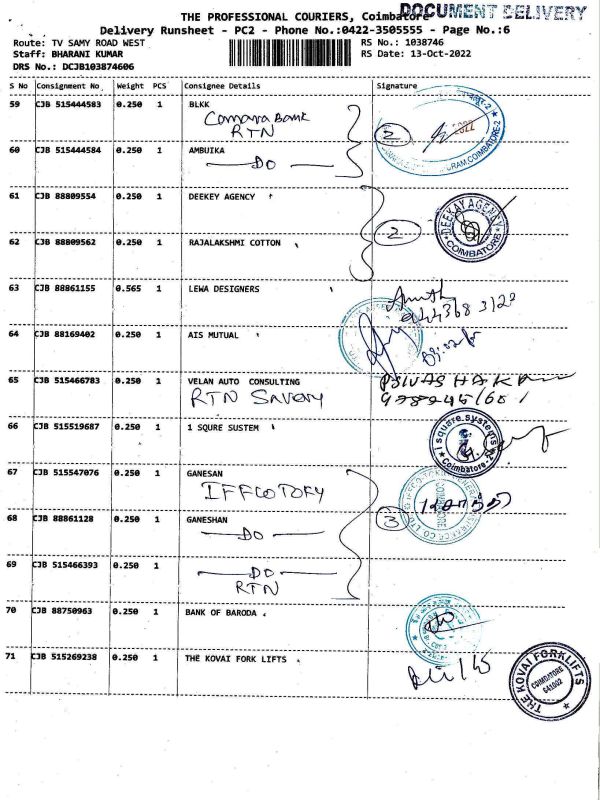 THE PROFESSIONAL COURIERS, Coimbatore
DOCUMENT DELIVERY
Delivery Runsheet - PC2 - Phone No.:0422-3505555 - Page No.:6
Route: TV SAMY ROAD WEST
RS No.: 1038746
Staff: BHARANI KUMAR
RS Date: 13-Oct-2022
DRS No.: DCJB103874606
S No Consignment No Weight PCS Consignee Details Signature
59 CJB 515444583 0.250 1 BLKK
Canara Bank
RTN
2
2022
COIMBATORE-2
60 CJB 515444584 0.250 1 AMBUIKA
DO
61 CJB 88809554 0.250 1 DEEKEY AGENCY
DEEKAY AGENCY
COIMBATORE
2
62 CJB 88809562 0.250 1 RAJALAKSHMI COTTON
63 CJB 88861155 0.565 1 LEWA DESIGNERS
64 CJB 88169402 0.250 1 AIS MUTUAL
65 CJB 515466783 0.250 1 VELAN AUTO CONSULTING
RTN
66 CJB 515519687 0.250 1 1 SQURE SUSTEM
i square systems
Coimbatore
67 CJB 515547076 0.250 1 GANESAN
COIMBATORE
3
68 CJB 88861128 0.250 1 GANESHAN
DO
69 CJB 515466393 0.250 1
DO
RTN
70 CJB 88750963 0.250 1 BANK OF BARODA
71 CJB 515269238 0.250 1 THE KOVAI FORK LIFTS
THE KOVAI FORKLIFTS
COIMBATORE
641002